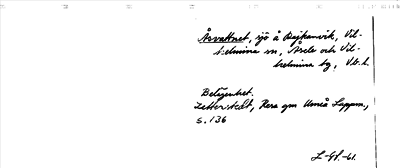 Åsvattnet, sjö å Dajkanvik, Vil-
helmina sn, Åsele och Vil-
helmina tg, Vb. l.
Belägenhet.
Zetterstedt, Resa gm Umeå Lappm,
s. 136
L-Gl. -61.